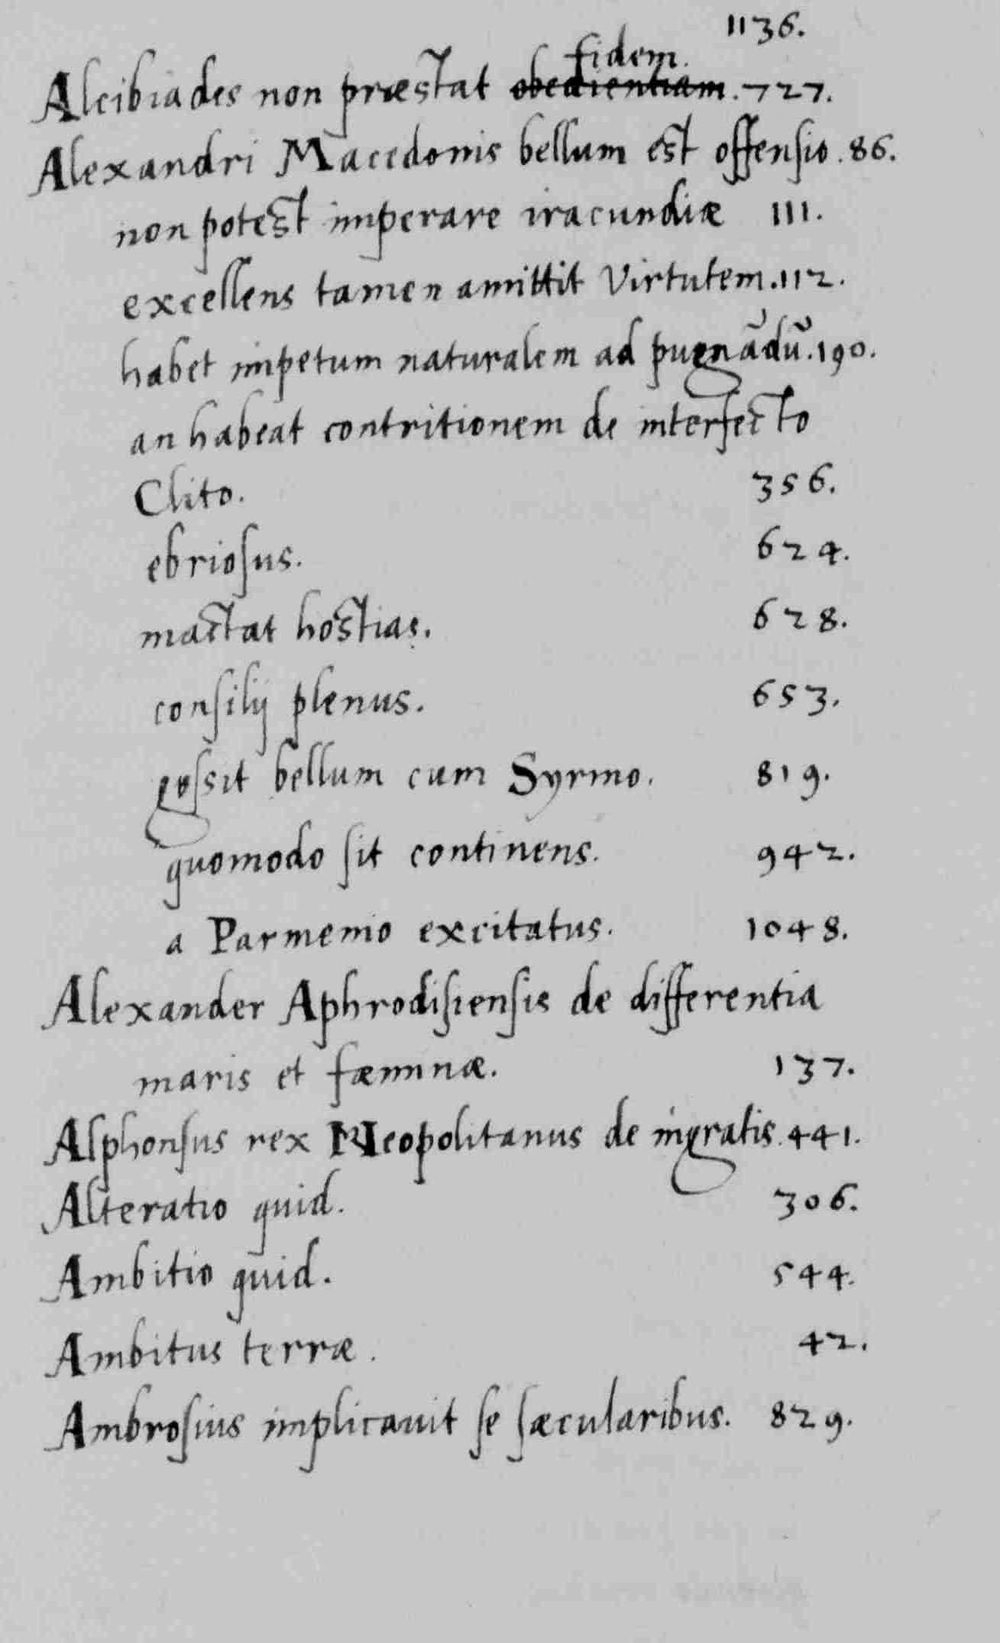 1136.
fidem.
Alcibiades non præstat obedientiam. 727.
Alexandri Macedonis bellum est offensio. 86.
non potest imperare iracundiæ 111.
excellens tamen amittit virtutem. 112.
habet impetum naturalem ad pugnādū. 190.
an habeat contritionem de interfecto
Clito. 356.
ebriosus. 624.
mactat hostias. 628.
consilij plenus. 653.
gessit bellum cum Syrmo. 819.
quomodo sit continens. 942.
a Parmenio excitatus. 1048.
Alexander Aphrodisiensis de differentia
maris et fæminæ. 137.
Alphonsus rex Neopolitanus de ingratis. 441.
Alteratio quid. 306.
Ambitio quid. 544.
Ambitus terræ. 42.
Ambrosius implicauit se sæcularibus. 829.